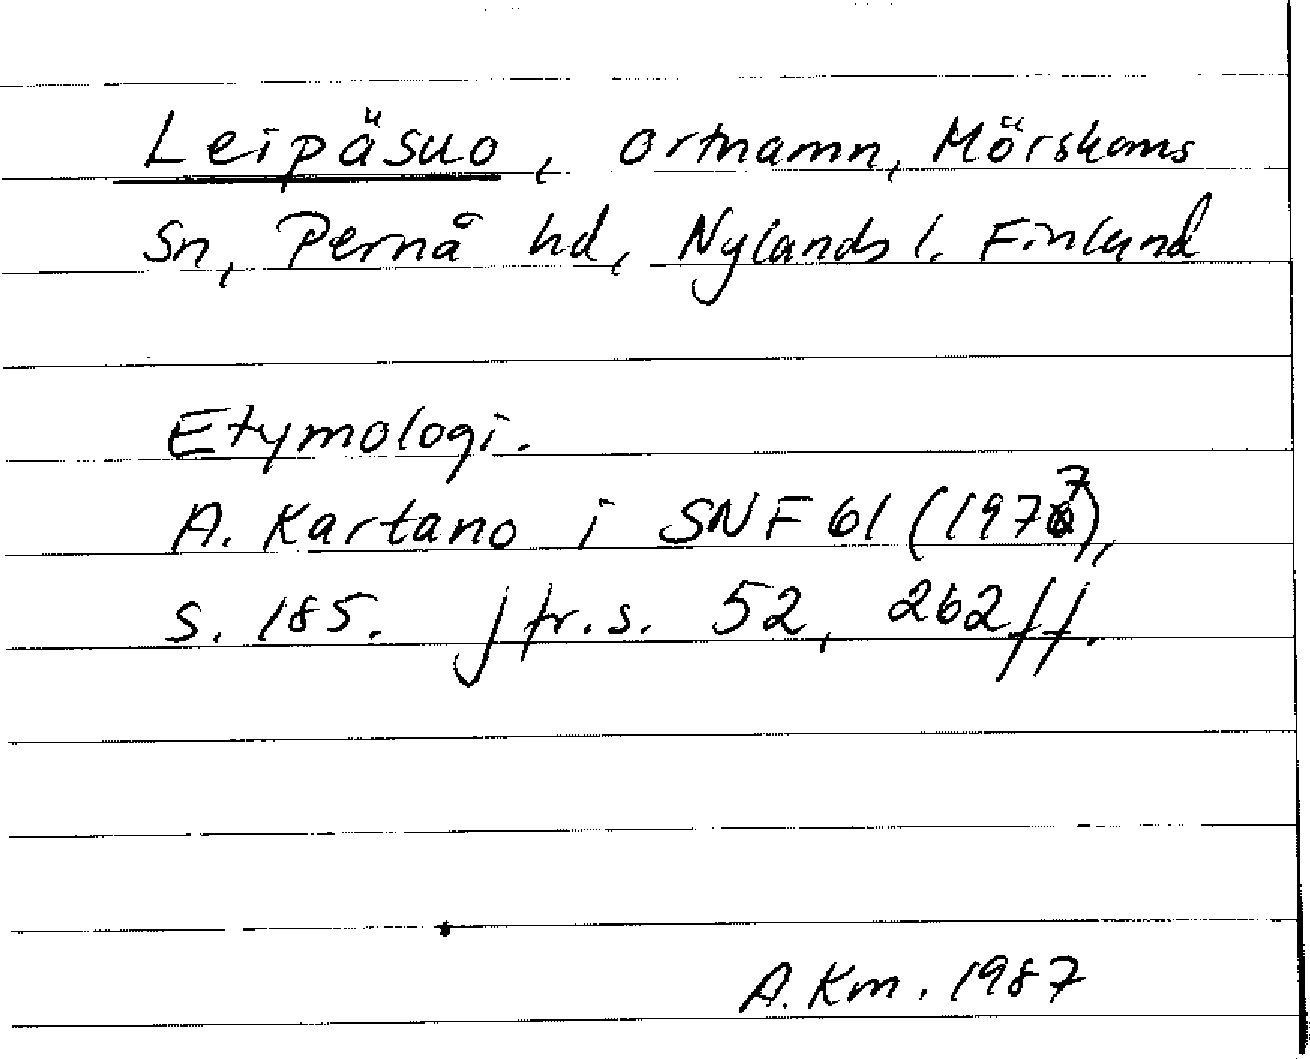 Leipäsuo, ortnamn, Mörskoms
Sn, Pernå hd, Nylands l. Finland
Etymologi.
A. Kartano i SNF 61 (1977),
s. 185. Jfr. s. 52, 262 ff.
A. Km. 1987